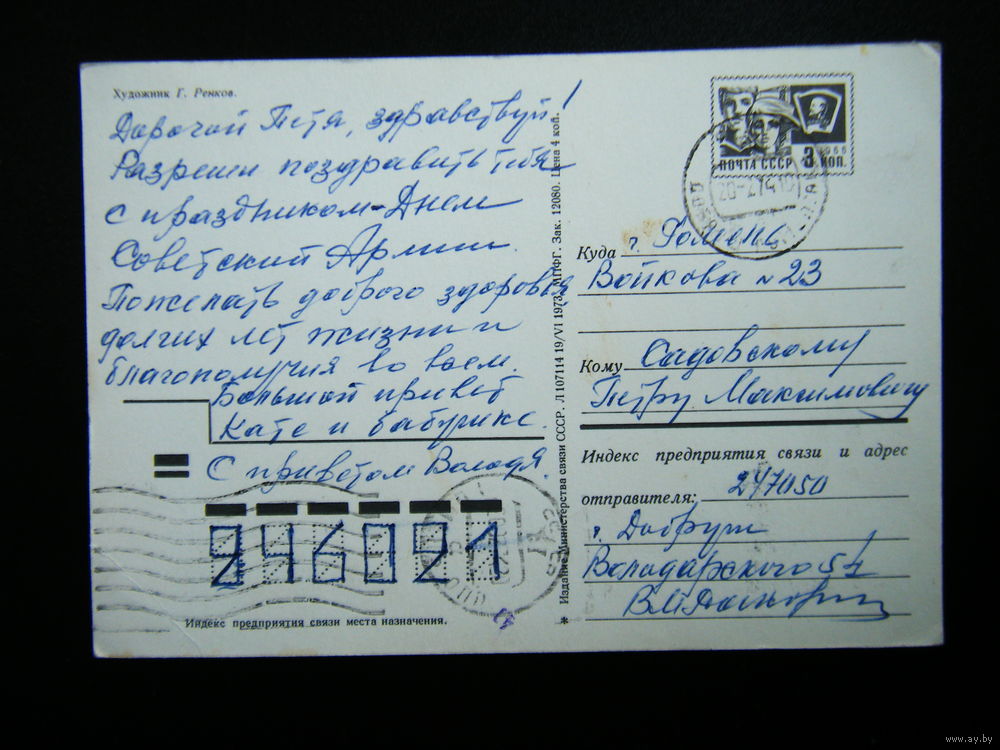 Художник Г. Ренков.
Дорогой Петя, здравствуй!
Разреши поздравить тебя
с праздником - Днем
Советский Армии.
Пожелать доброго здоровья
долгих лет жизни и
благополучия во всем.
Большой привет
Кате и бабушке.
С приветом Володя.
246021
Индекс предприятия связи места назначения.
Издание Министерства связи СССР. Л 107114 19/VI 1973. МПФГ. Зак. 12080. Цена 4 коп.
ПОЧТА СССР 3 КОП.
1966
Куда г. Гомель
Войкова №23
Кому Садовскому
Петру Максимовичу
Индекс предприятия связи и адрес
отправителя: 247050
г. Добруш
Володарского 54
*
www.ay.by